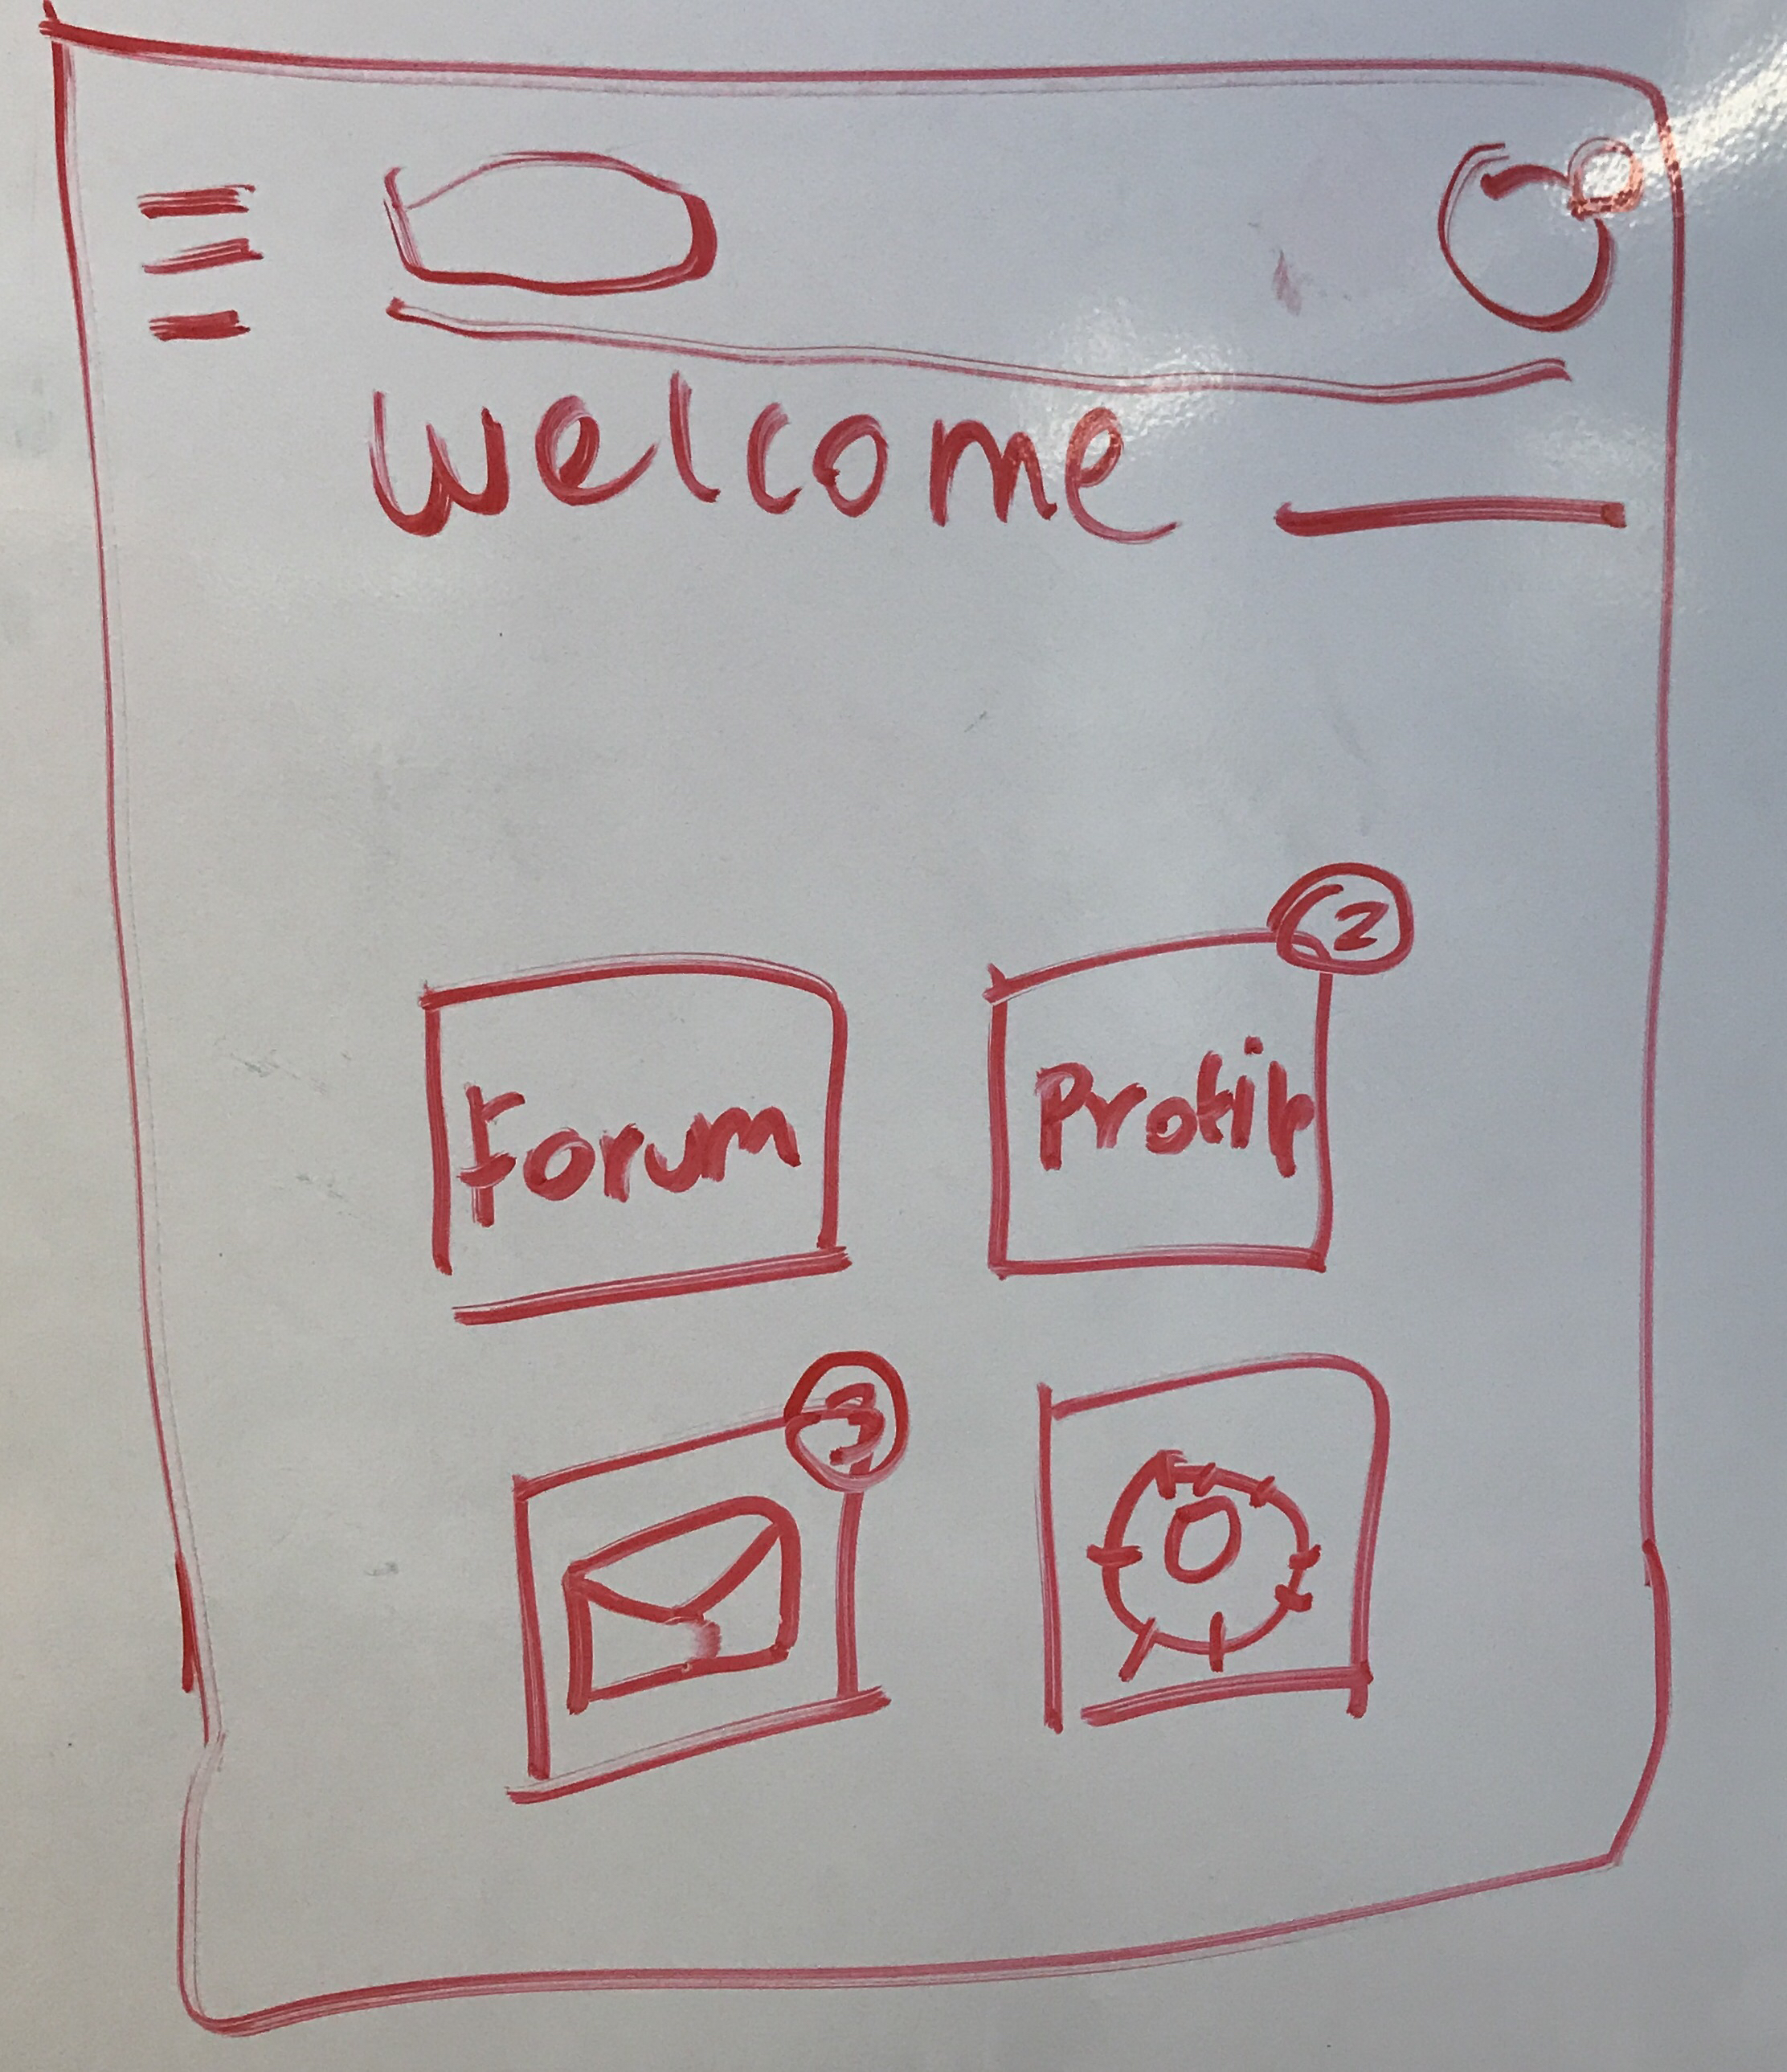 welcome
2
Forum
Profil
3